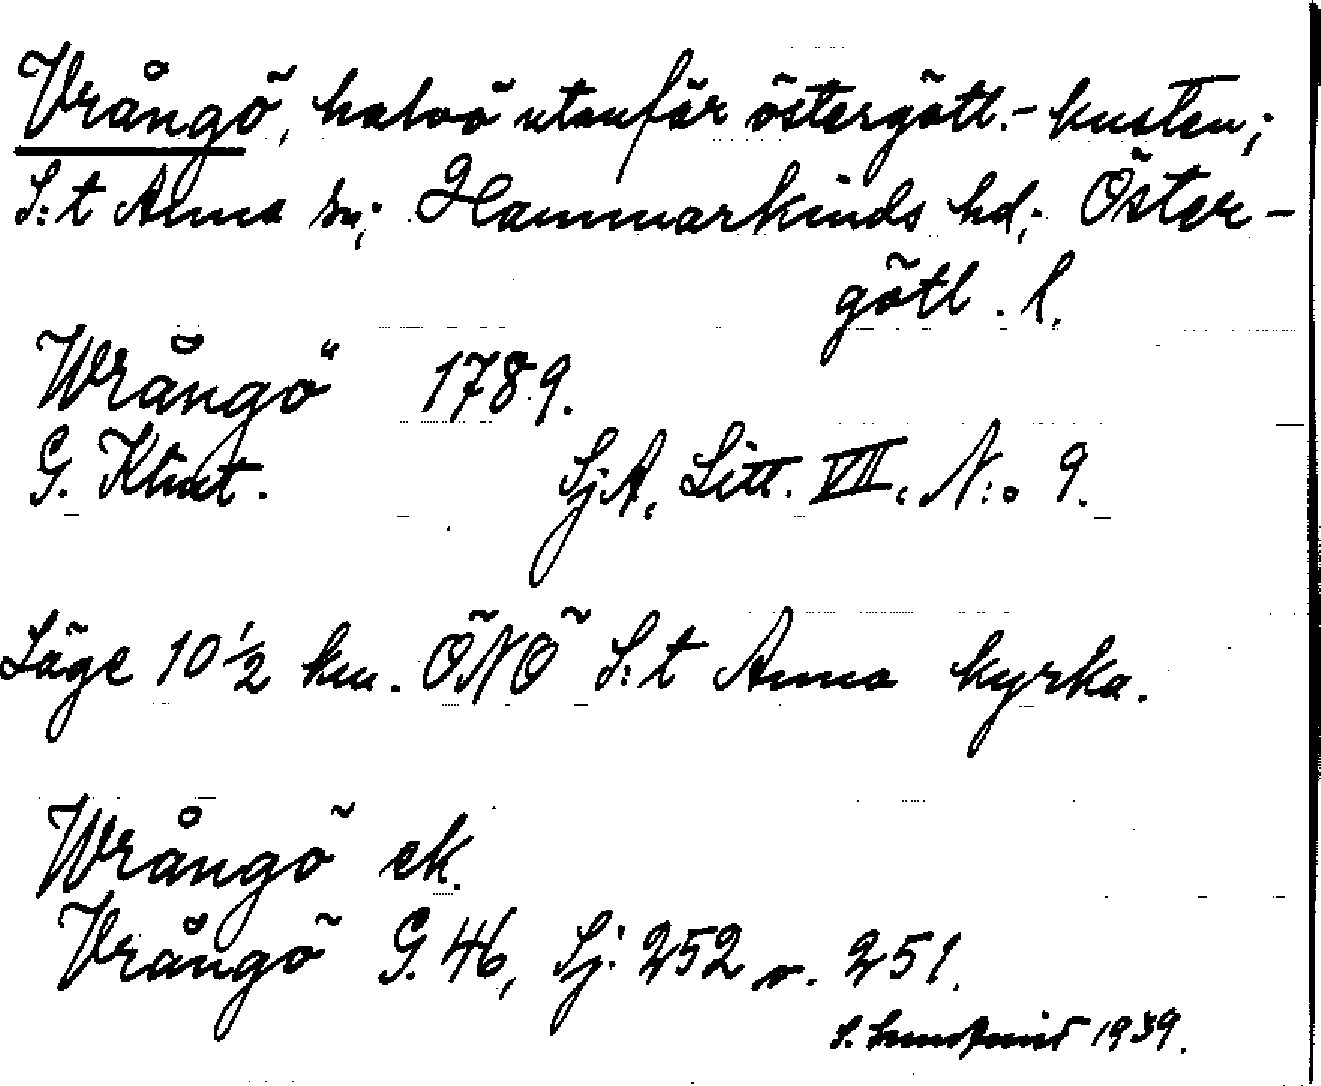 Vrångö, halvö utanför östergötl.-kusten;
S:t Anna sn; Hammarkinds hd; Öster-
götl. l.
Wrångö 1789.
G. Klint. SjA, Litt. VII. N:o 9.
Läge 10 1/2 km. ÖNÖ S:t Anna kyrka.
Wrångö ek.
Vrångö G. 46, Sj. 252 o. 251.
S. 1939.